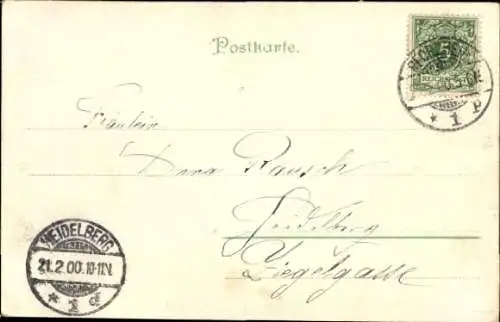 Postkarte.
5
PFORZHEIM
* 1 p
Fräulein
Dora Rausch
Heidelberg
Ziegelgasse
HEIDELBERG
21.2.00.10-11N.
* 1 d